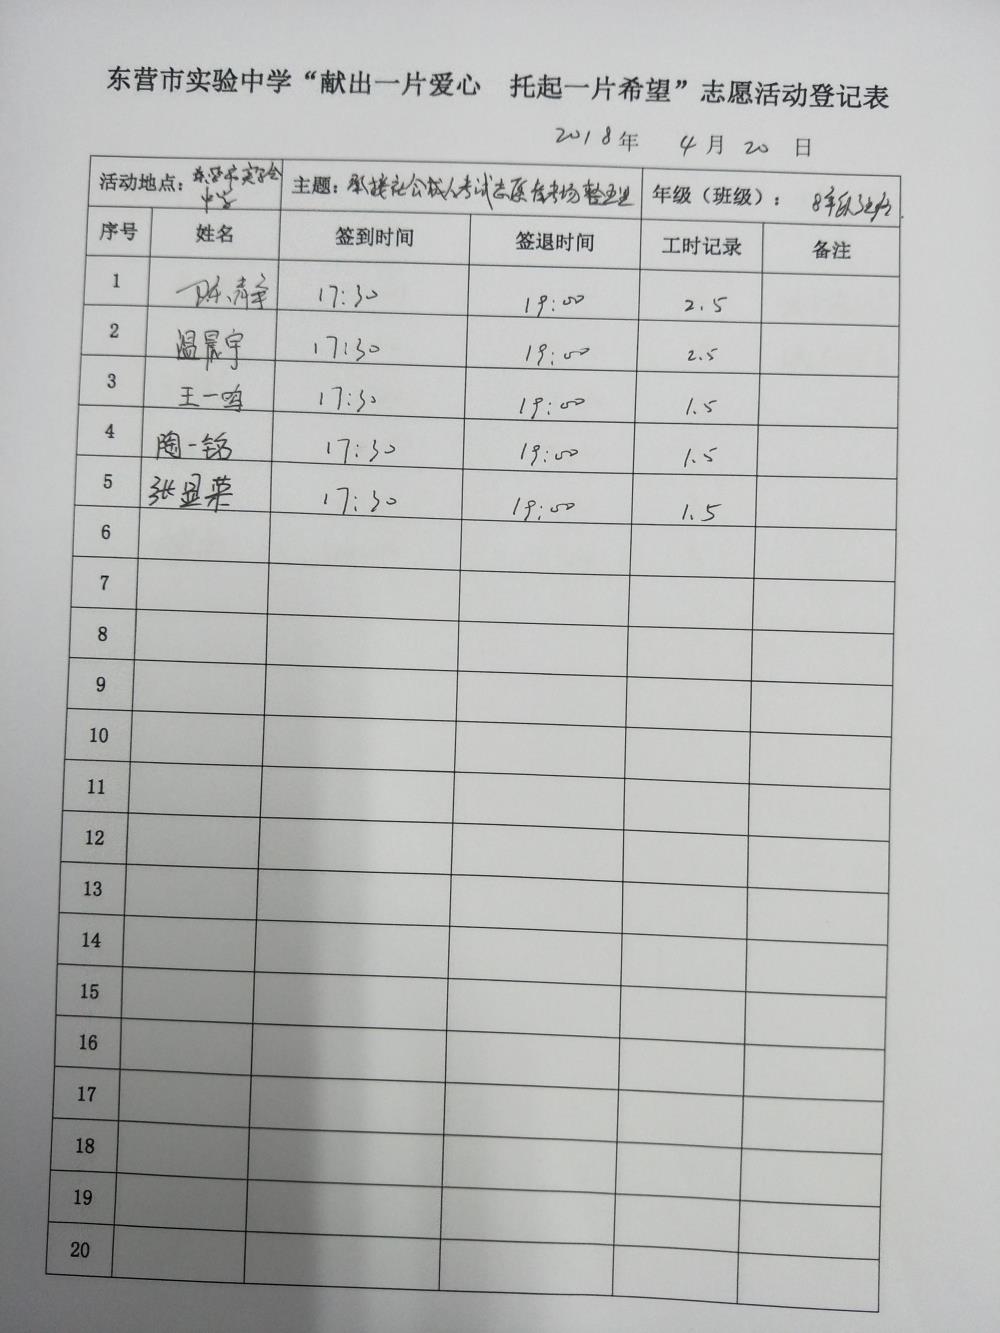 东营市实验中学“献出一片爱心 托起一片希望”志愿活动登记表
2018年 4月 20 日
活动地点：东营市实验中学 主题：承接社会成人考试志愿者考场整理 年级（班级）：8年级
序号 姓名 签到时间 签退时间 工时记录 备注
1 陈静 17:30 19:00 2.5
2 温晨宇 17:30 19:00 2.5
3 王一鸣 17:30 19:00 1.5
4 陶一铭 17:30 19:00 1.5
5 张显荣 17:30 19:00 1.5
6
7
8
9
10
11
12
13
14
15
16
17
18
19
20